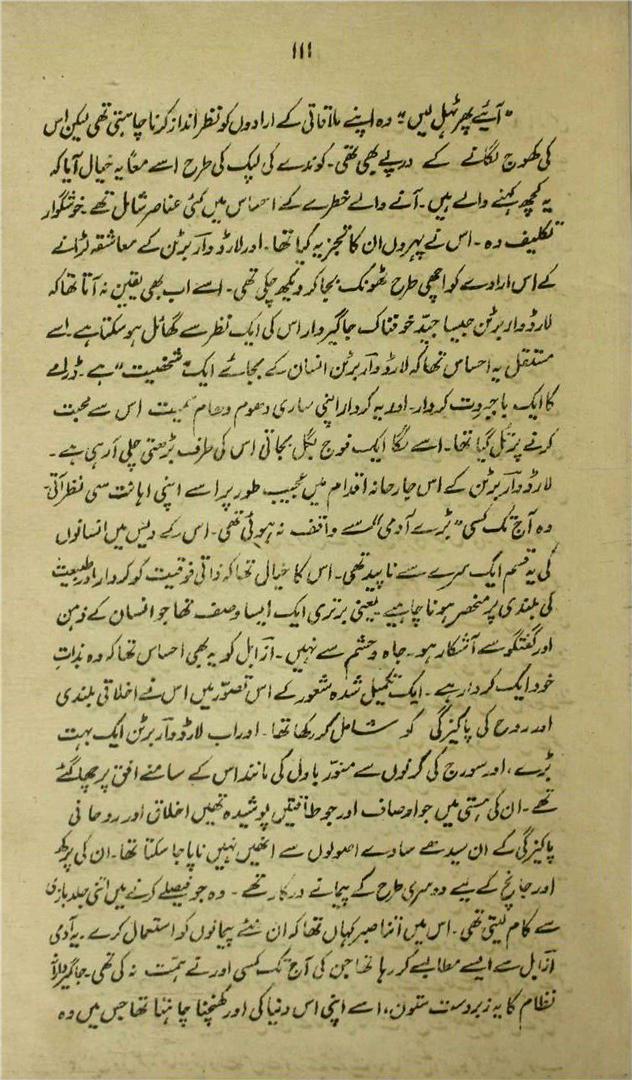 ۱۱۱
"آیئے پھر ٹہل لیں" وہ اپنے ملاقاتی کے ارادوں کو نظر انداز کرنا چاہتی تھی لیکن اس
کی کھوج لگانے کے درپے بھی تھی۔ کوندے کی لپک کی طرح اسے معاً یہ خیال آیا کہ
یہ کچھ کہنے والے ہیں۔ آنے والے خطرے کے احساس میں کئی عناصر شامل تھے۔ خوشگوار
تکلیف دہ۔ اس نے پہروں ان کا تجزیہ کیا تھا۔ اور لارڈ وآر برٹن کے معاشقہ لڑانے
کے اس ارادے کو اچھی طرح ٹھونک بجا کر دیکھ چکی تھی۔ اسے اب بھی یقین نہ آتا تھا کہ
لارڈ وار برٹن جیسا جیّد خوفناک جاگیردار اس کی ایک نظر سے گھائل ہو سکتا ہے۔ اسے
مستقل یہ احساس تھا کہ لارڈ وآر برٹن انسان کے بجائے ایک "شخصیت" ہے۔ ڈرامے
کا ایک با جبروت کردار۔ اور یہ کردار اپنی ساری دھوم دھام سمیت اس سے محبت
کرنے پر تل گیا تھا۔ اسے لگا ایک فوج بگل بجاتی اس کی طرف بڑھتی چلی آ رہی ہے۔
لارڈ وآر برٹن کے اس جارحانہ اقدام میں عجیب طور پر اسے اپنی اہانت سی نظر آتی۔
وہ آج تک کسی "بڑے آدمی" سے واقف نہ ہوئی تھی۔ اس کے دیس میں انسانوں
کی یہ قسم ایک سرے سے ناپید تھی۔ اس کا خیال تھا کہ ذاتی فوقیت کو کردار اور طبیعت
کی بلندی پر منحصر ہونا چاہیے یعنی برتری ایک ایسا وصف تھا جو انسان کے ذہن
اور گفتگو سے آشکار ہو۔ جاہ و حشم سے نہیں۔ ازآبل کو یہ بھی احساس تھا کہ وہ بذاتِ
خود ایک کردار ہے۔ ایک تکمیل شدہ شعور کے اس تصوّر میں اس نے اخلاقی بلندی
اور روح کی پاکیزگی کو شامل کر رکھا تھا۔ اور اب لارڈ وآر برٹن ایک بہت
بڑے، اور سورج کی کرنوں سے منوّر بادل کی مانند اس کے سامنے افق پر چھا گئے
تھے۔ ان کی ہستی میں جو اوصاف اور جو طاقتیں پوشیدہ تھیں اخلاق اور روحانی
پاکیزگی کے ان سیدھے سادے اصولوں سے انھیں نہیں ناپا جا سکتا تھا۔ ان کی پرکھ
اور جانچ کے لیے دوسری طرح کے پیمانے درکار تھے۔ وہ جو فیصلے کرنے میں اتنی جلد بازی
سے کام لیتی تھی۔ اس میں اتنا صبر کہاں تھا کہ ان نئے پیمانوں کو استعمال کرے۔ یہ آدمی
ازآبل سے ایسے مطالبے کر رہا تھا جن کی آج تک کسی اور نے ہمّت نہ کی تھی۔ جاگیردارانہ
نظام کا یہ زبردست ستون، اسے اپنی اس دنیا کی اور کھینچنا چاہتا تھا جس میں وہ